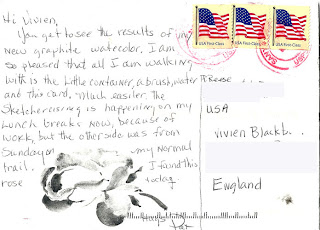 Hi Vivien,
You get to see the results of my
new graphite watercolor. I am
so pleased that all I am walking
with is the little container, a brush, water
and this card. Much easiler. The
Sketchercising is happening on my
Lunch breaks now, because of
work, but the other side was from
Sunday on my normal
trail. I found this
rose today.
Hugs
USA First-Class
USA First-Class
USA First-Class
USA
Vivien Blackb
England